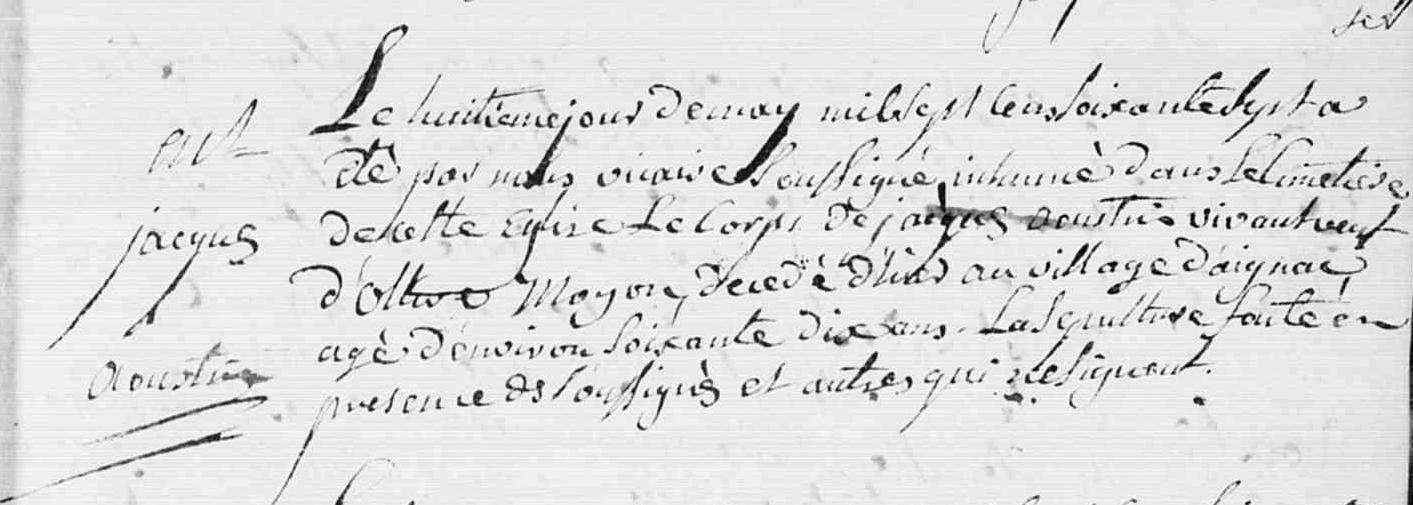 Le huitieme jour de may mil sept cens soixante sept a
été par nous vicaire soussigné inhumé dans le cimetiere
de cette eglise le corps de jacques aoustin vivant veuf
d'ollive Moyon, decedé d'hier au village d'aignac
agé d'environ soixante dix ans. La sepulture faite en
presence des soussignés et autres qui ne signent.
jacques
aoustin